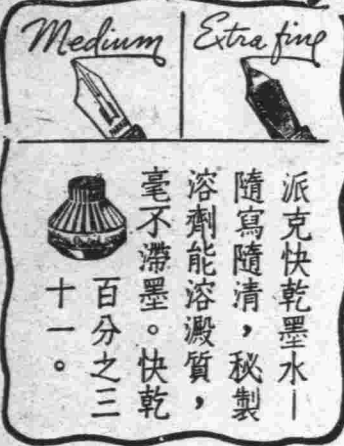 Medium
Extra fine
派克快乾墨水—
隨寫隨清,秘製
溶劑能溶澱質,
毫不滯墨。快乾
百分之三
十一。